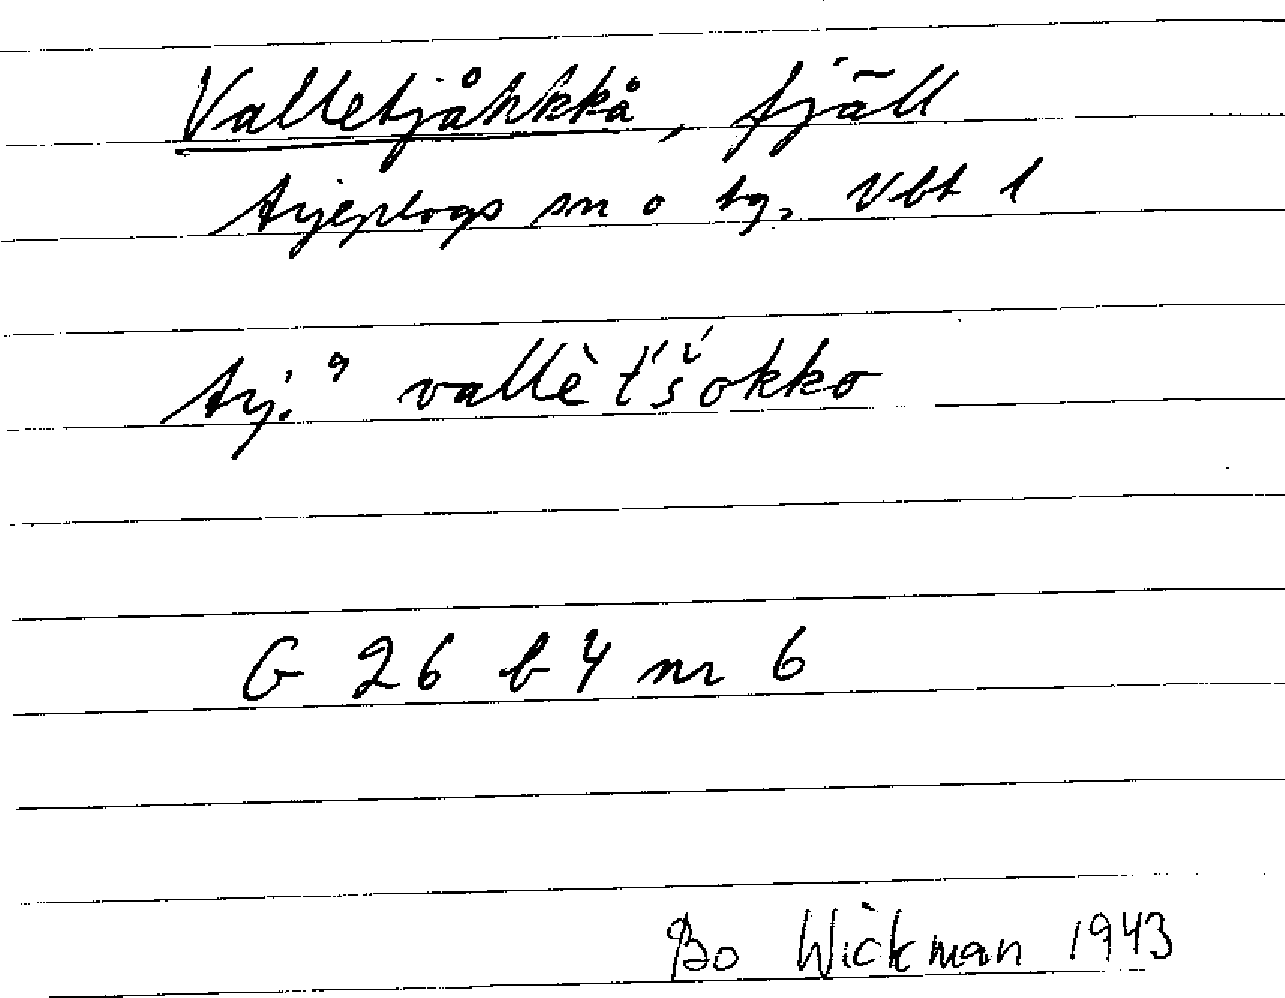 Valletjåhkkå, fjäll
Arjeplogs sn o tg, Vbt l
Arj. 9 vallè t́š́okko
G 26 b 4 nr 6
Bo Wickman 1943